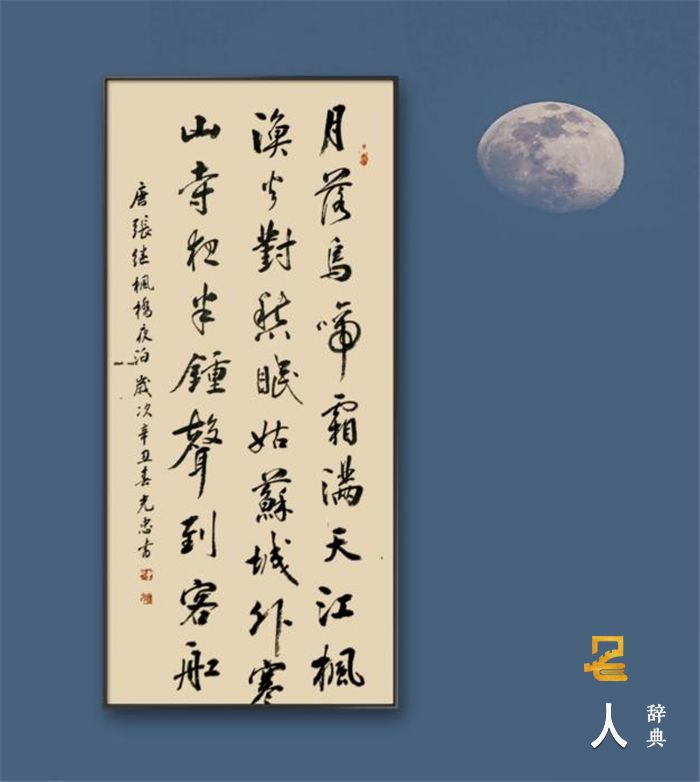 月落烏啼霜满天江楓
渔火對愁眠姑蘇城外寒
山寺夜半鍾聲到客船
唐張继楓橋夜泊歲次辛丑春光忠书
名人
辞典